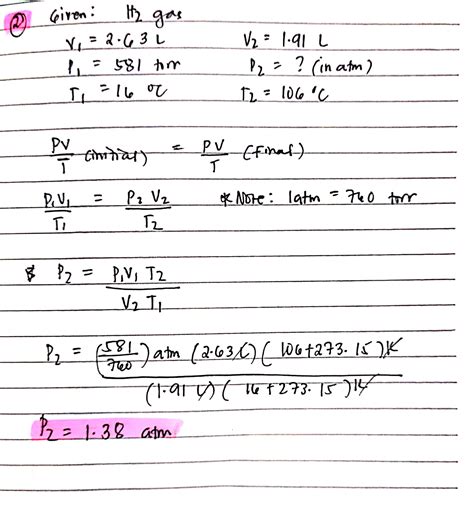 ② Given: H₂ gas
V₁ = 2.63 L V₂ = 1.91 L
P₁ = 581 torr P₂ = ? (in atm)
T₁ = 16 °C T₂ = 106 °C
PV/T (initial) = PV/T (final)
P₁V₁/T₁ = P₂V₂/T₂ * Note: 1atm = 760 torr
P₂ = P₁V₁T₂ / V₂T₁
P₂ = (581/760) atm (2.63 L) (106+273.15) K / (1.91 L) (16+273.15) K
P₂ = 1.38 atm